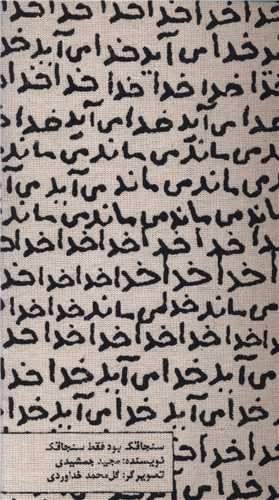 خدا خدا خدا خدا خدا
خدا می آید خدا می آید خدا
خدا خدا خدا خدا خدا
می آید خدا می آید خدا
می ماند می ماند می ماند
ماند می ماند می ماند می
می ماند می آید می آید
می ماند می ماند می ماند
می ماند می ماند می ماند
خدا خدا خدا خدا خدا
خدا خدا خدا خدا خدا
می ماند خدا می ماند خدا
خدا خدا خدا خدا خدا
خدا می آید خدا می آید خدا
می آید خدا می آید خدا
سنجاقک بود فقط سنجاقک
نویسنده: مجید جمشیدی
تصویرگر: گل محمد خداوردی